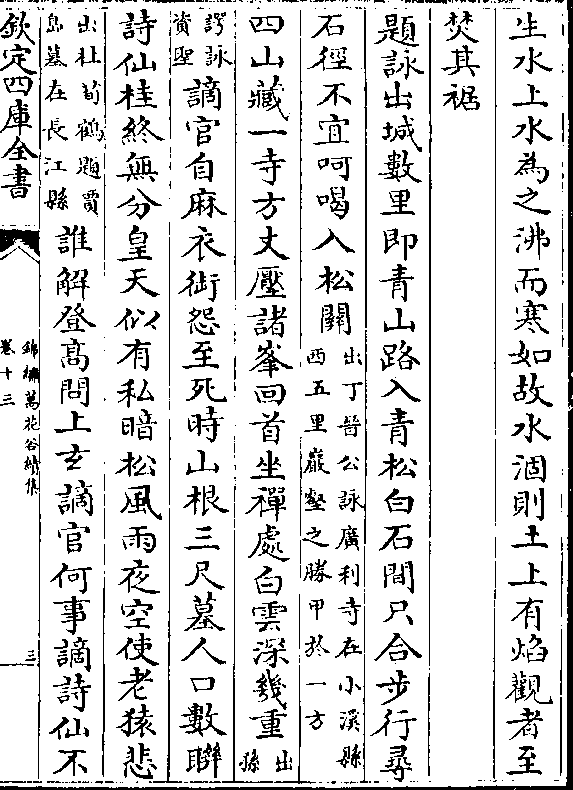 生水上水為之沸而寒如故水涸則土上有焰觀者至
焚其裾
題詠出城數里即青山路入青松白石間只合步行尋
石徑不宜呵喝入松關出丁晉公詠廣利寺在小溪縣
西五里巖壑之勝甲於一方
四山藏一寺方丈壓諸峯回首坐禪處白雲深幾重出孫
諤詠
資聖謫官自麻衣銜怨至死時山根三尺墓人口數聯
詩仙桂終無分皇天似有私暗松風雨夜空使老猿悲
出杜荀鶴題賈
島墓在長江縣誰解登高問上玄謫官何事謫詩仙不
欽定四庫全書
錦繡萬花谷續集
卷十三
三